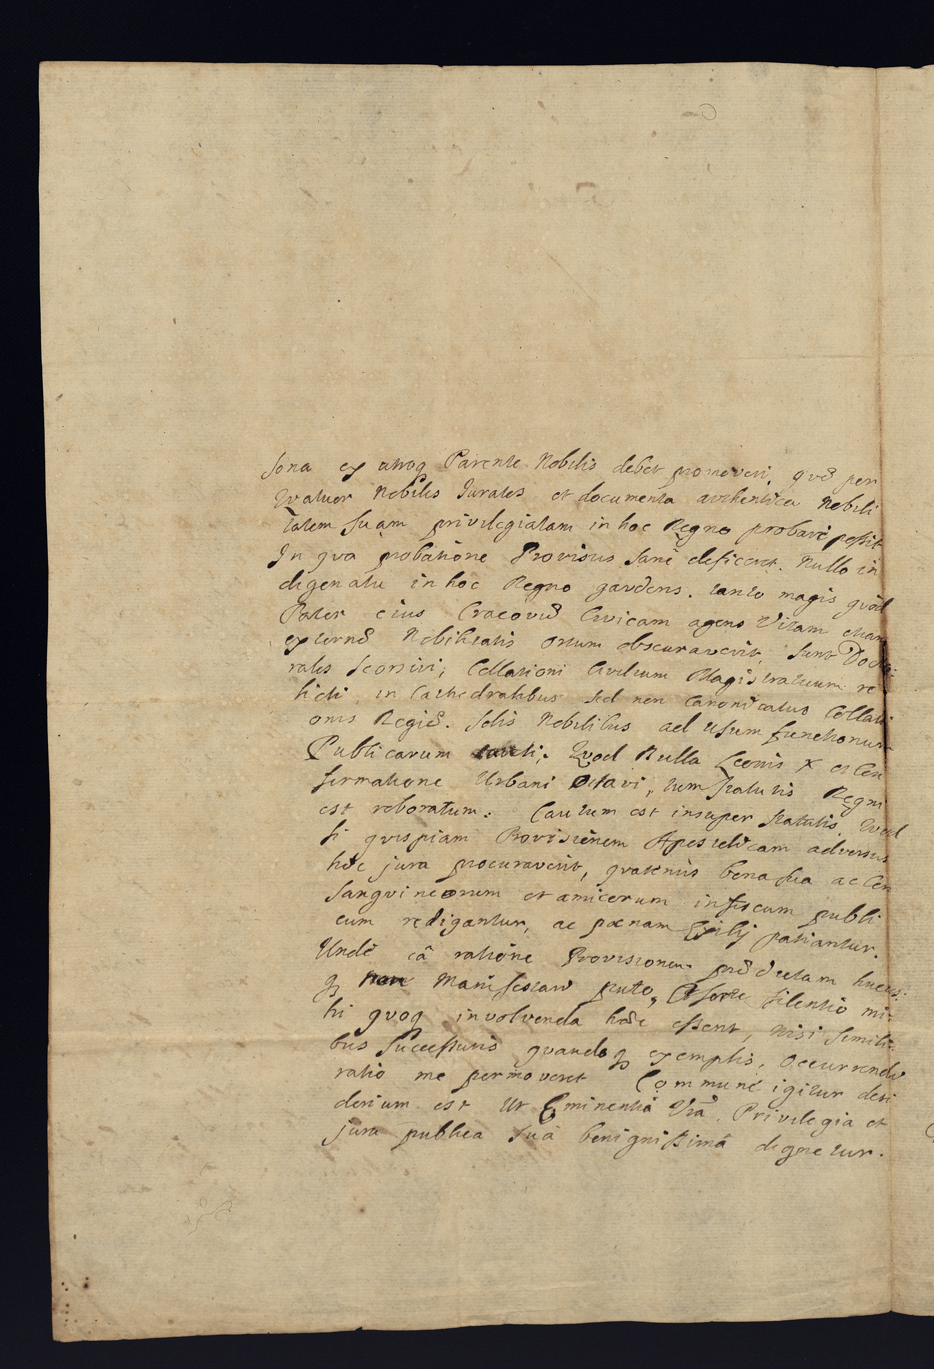 sona ex utroq Parente Nobilis debet promoveri, quæ per
Quatuor Nobiles Juratos et documenta authentica Nobili
tatem suam privilegiatam in hoc Regno probare possit
In qua probatione Provisus sane deficeret. Nullo in
digenatu in hoc Regno gaudens. tanto magis quod
Pater eius Cracoviæ Civicam agens Vitam etiam
externæ Nobilitatis ortum obscuraverit, sunt Docto
rales seorsivi, Collationi Civilium Magistratuum re
licti in Cathedralibus sed non Canonicatus Collati
onis Regiæ. Solis Nobilibus ad usum functionum
Publicarum Quod Bulla Leonis X et Con
firmatione Urbani Octavi, tum statutis Regni
est roboratum. Cautum est insuper statutis, Quod
si quispiam Provisionem Apostolicam adversus
hæc jura procuraverit, quatenus bona sua ac Con
sanguineorum et amicorum in fiscum publi
cum redigantur, ac pœnam Exilij patiantur.
Unde eâ ratione Provisionem prædictam hucus
q non Manifestam puto, et forte silentio mi
hi quoq involvenda hæc essent, nisi simili
bus successivis quandoq exemplis, occurrendi
ratio me permoveret Commune igitur desi
derium est Ut Eminentia Vrã Privilegia et
jura publica suâ benignissimâ dignetur.